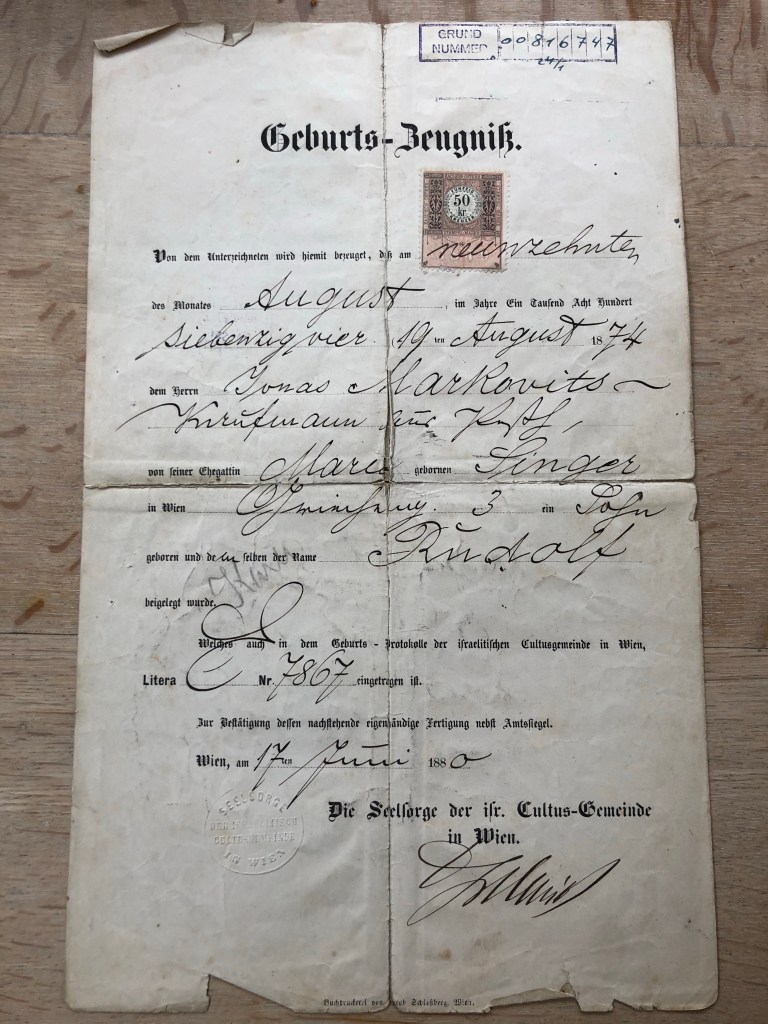 GRUND
NUMMER 00816747
24/1
Geburts-Zeugniß.
50
kr
Von dem Unterzeichneten wird hiemit bezeuget, daß am neunzehnten
des Monates August, im Jahre Ein Tausend Acht Hundert
siebenzigvier 19ten August 1874
dem Herrn Jonas Markovits
Kaufmann aus Pest,
von seiner Ehegattin Marie gebornen Singer
in Wien 3 ein Sohn
geboren und dem selben der Name Rudolf
beigelegt wurde.
Welches auch in dem Geburts-Protokolle der israelitischen Cultusgemeinde in Wien,
Litera E Nr. 7867 eingetragen ist.
Zur Bestätigung dessen nachstehende eigenhändige Fertigung nebst Amtssiegel.
Wien, am 17ten Juni 1880
SEELSORGE
DER ISRAELITISCH
CULTUSGEMEINDE
IN WIEN
Die Seelsorge der isr. Cultus-Gemeinde
in Wien.
Buchdruckerei von Jacob Schloßberg, Wien.